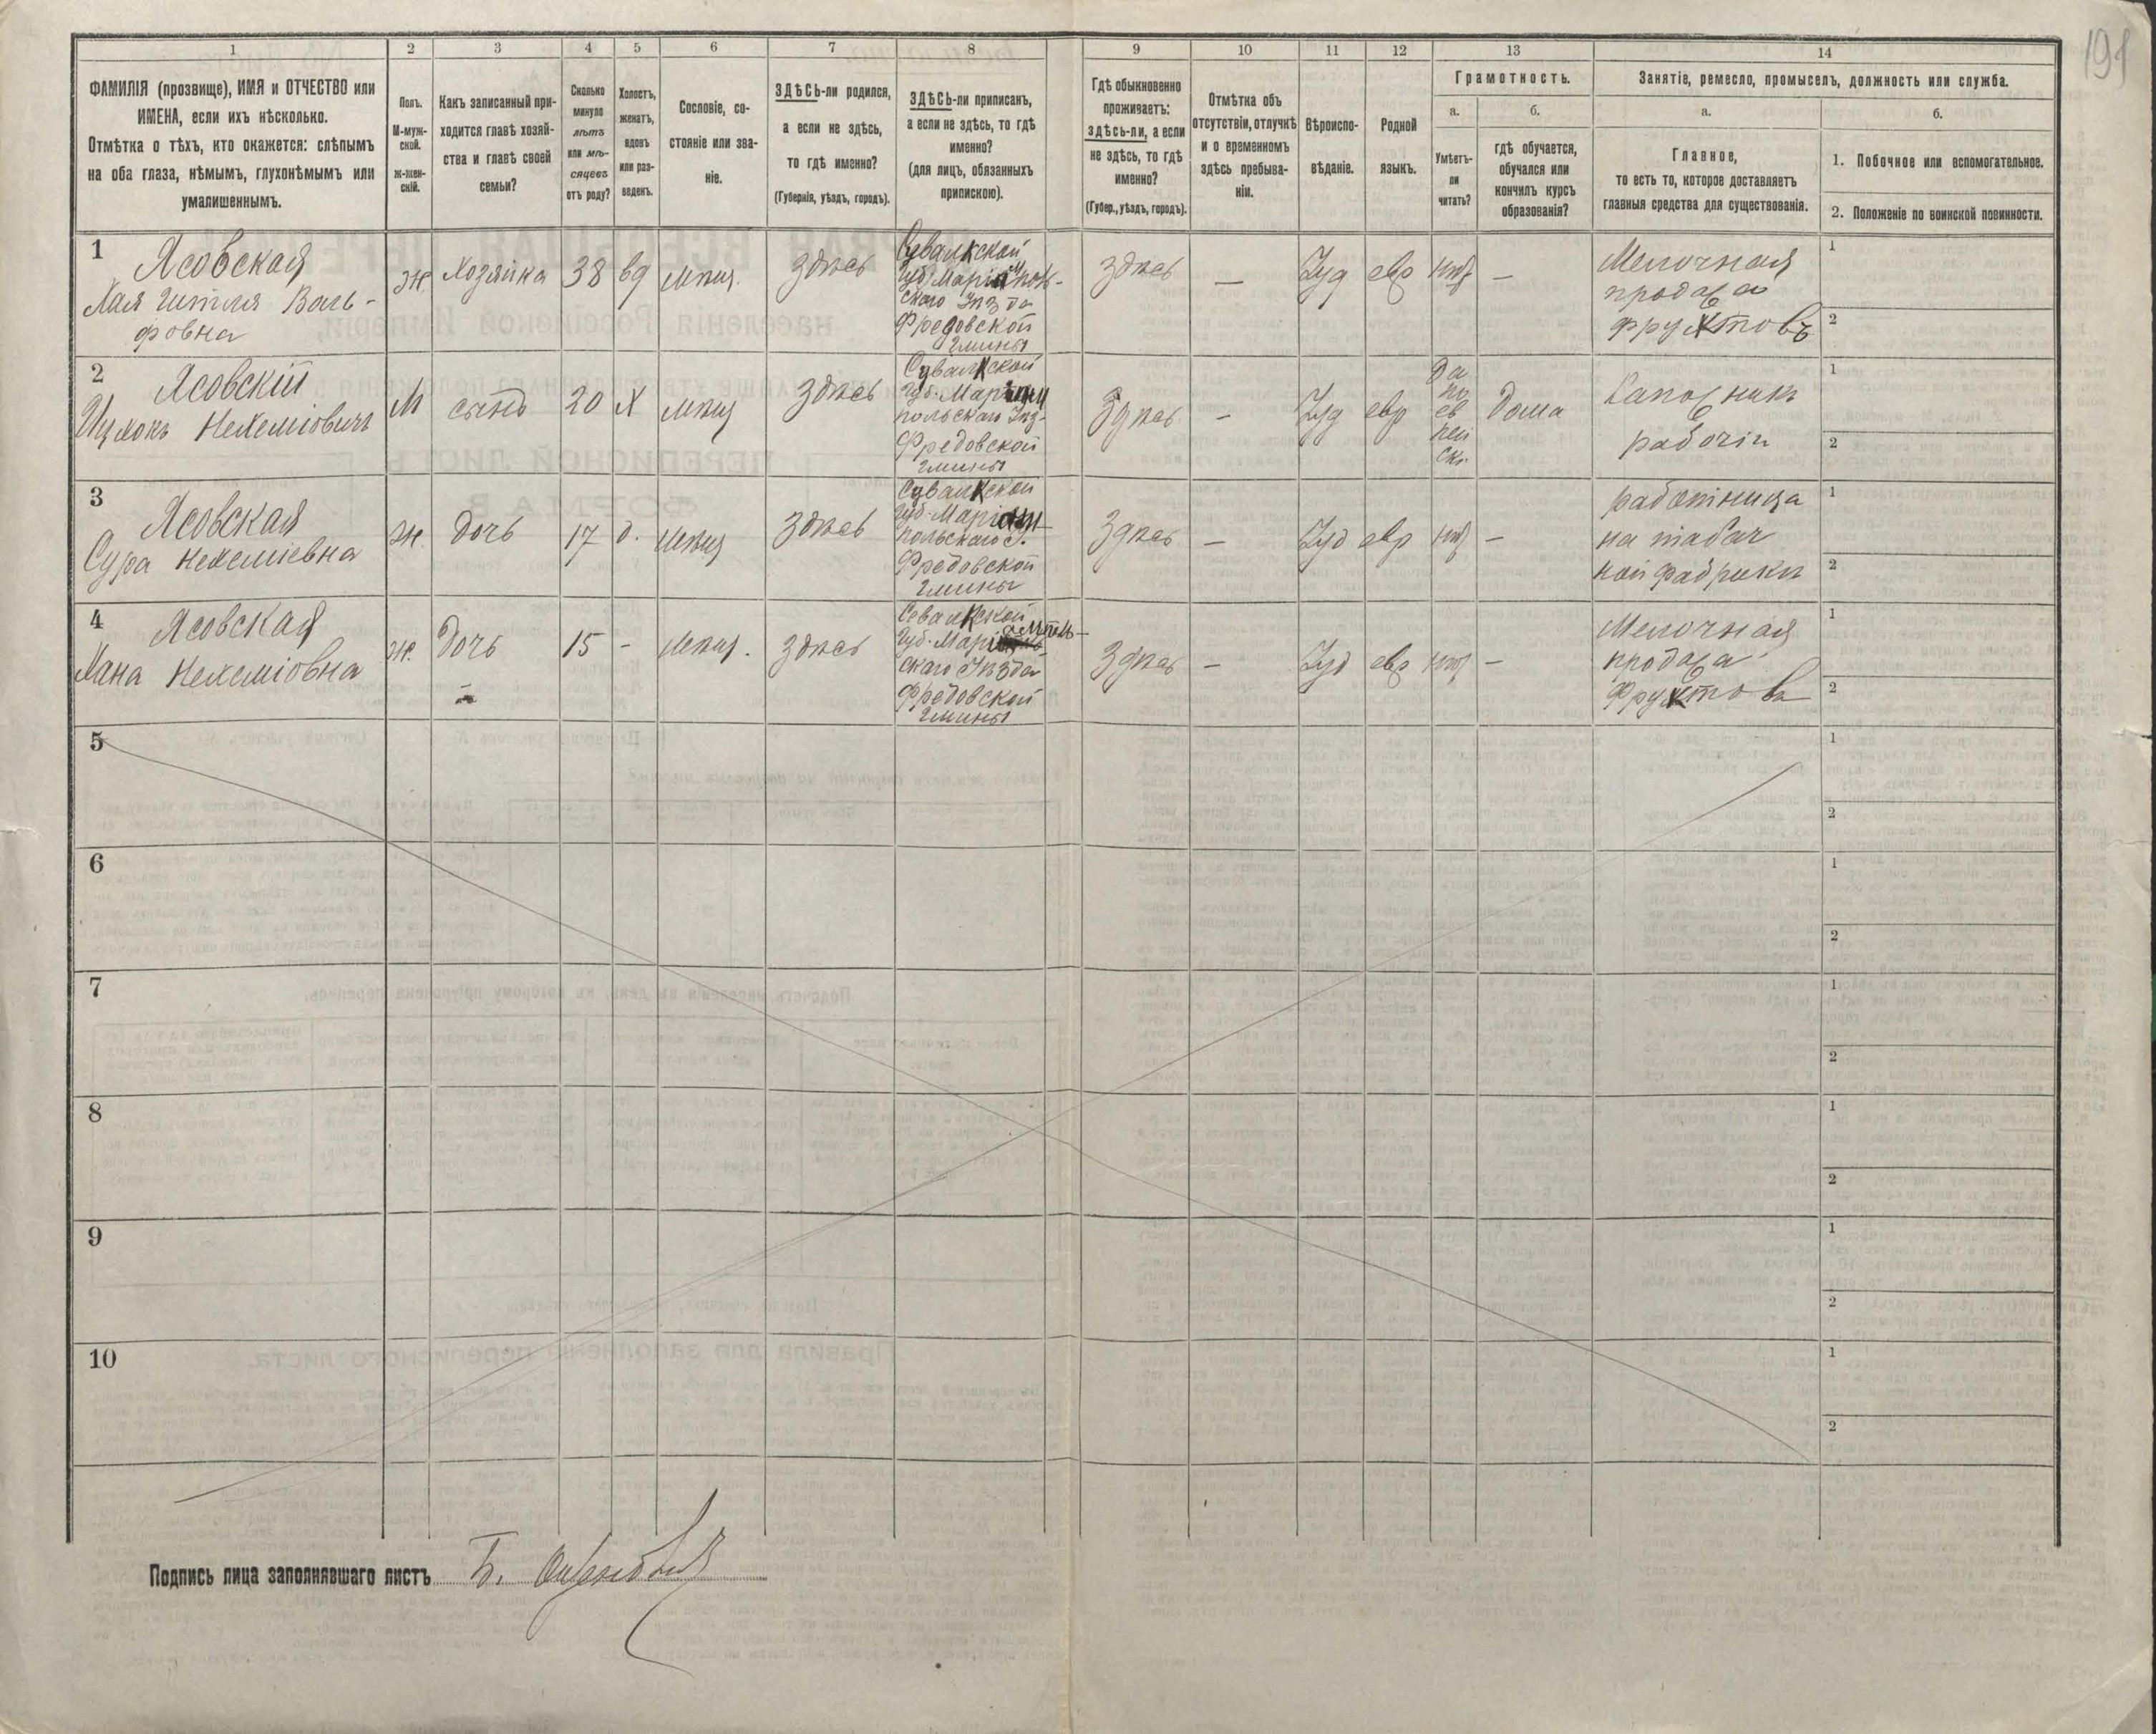 191
1 2 3 4 5 6 7 8 9 10 11 12 13 14
ФАМИЛІЯ (прозвище), ИМЯ и ОТЧЕСТВО или
ИМЕНА, если ихъ нѣсколько.
Отмѣтка о тѣхъ, кто окажется: слѣпымъ
на оба глаза, нѣмымъ, глухонѣмымъ или
умалишеннымъ.
Полъ.
М-муж-
ской.
ж-жен-
скій.
Какъ записанный при-
ходится главѣ хозяй-
ства и главѣ своей
семьи?
Сколько
минуло
лѣтъ
или мѣ-
сяцевъ
отъ роду?
Холостъ,
женатъ,
вдовъ
или раз-
веденъ.
Сословіе, со-
стояніе или зва-
ніе.
ЗДѢСЬ-ли родился,
а если не здѣсь,
то гдѣ именно?
(Губернія, уѣздъ, городъ).
ЗДѢСЬ-ли приписанъ,
а если не здѣсь, то гдѣ
именно?
(для лицъ, обязанныхъ
припискою).
Гдѣ обыкновенно
проживаетъ:
здѣсь-ли, а если
не здѣсь, то гдѣ
именно?
(Губер., уѣздъ, городъ).
Отмѣтка объ
отсутствіи, отлучкѣ
и о временномъ
здѣсь пребыва-
ніи.
Вѣроиспо-
вѣданіе.
Родной
языкъ.
Грамотность.
а.
Умѣетъ-
ли
читать?
б.
гдѣ обучается,
обучался или
кончилъ курсъ
образованія?
Занятіе, ремесло, промыселъ, должность или служба.
а.
Главное,
то есть то, которое доставляетъ
главныя средства для существованія.
б.
1. Побочное или вспомогательное.
2. Положеніе по воинской повинности.
1
Ясовская
Хая Шейля Воль-
фовна
ж.
Хозяйка
38
вд
мѣщ.
здѣсь
Сувалкской
Губ. Маріямполь-
скаго Уѣзда
Фредовской
гмины
здѣсь
—
Іуд
евр
нѣт
—
Мелочная
продажа
фруктовъ
1
2
2
Ясовскій
Ицхокъ Нехеміовичъ
М
сынъ
20
Х
мѣщ
здѣсь
Сувалкской
Губ. Маріям
польскаго Уѣз-
Фредовской
гмины
Здѣсь
-
Іуд
евр
да
по
ев
рей
ски
дома
Сапожник
рабочій
1
2
3
Ясовская
Сура Нехеміевна
ж.
дочь
17
д.
мѣщ
здѣсь
Сувалкской
Губ. Маріям-
польскаго У.
Фредовской
гмины
Здѣсь
—
Іуд
евр
нѣт
—
работница
на табач
ной фабрики
1
2
4
Ясовская
Хана Нехеміовна
ж.
дочь
15
-
мѣщ.
здѣсь
Сувалкской
Губ. Маріямполь-
скаго Уѣзда
Фредовской
гмины
Здѣсь
—
Іуд
евр
нѣт
—
Мелочная
продажа
Фруктовъ
1
2
5
1
2
6
1
2
7
1
2
8
1
2
9
1
2
10
1
2
Подпись лица заполнявшаго листъ Б.